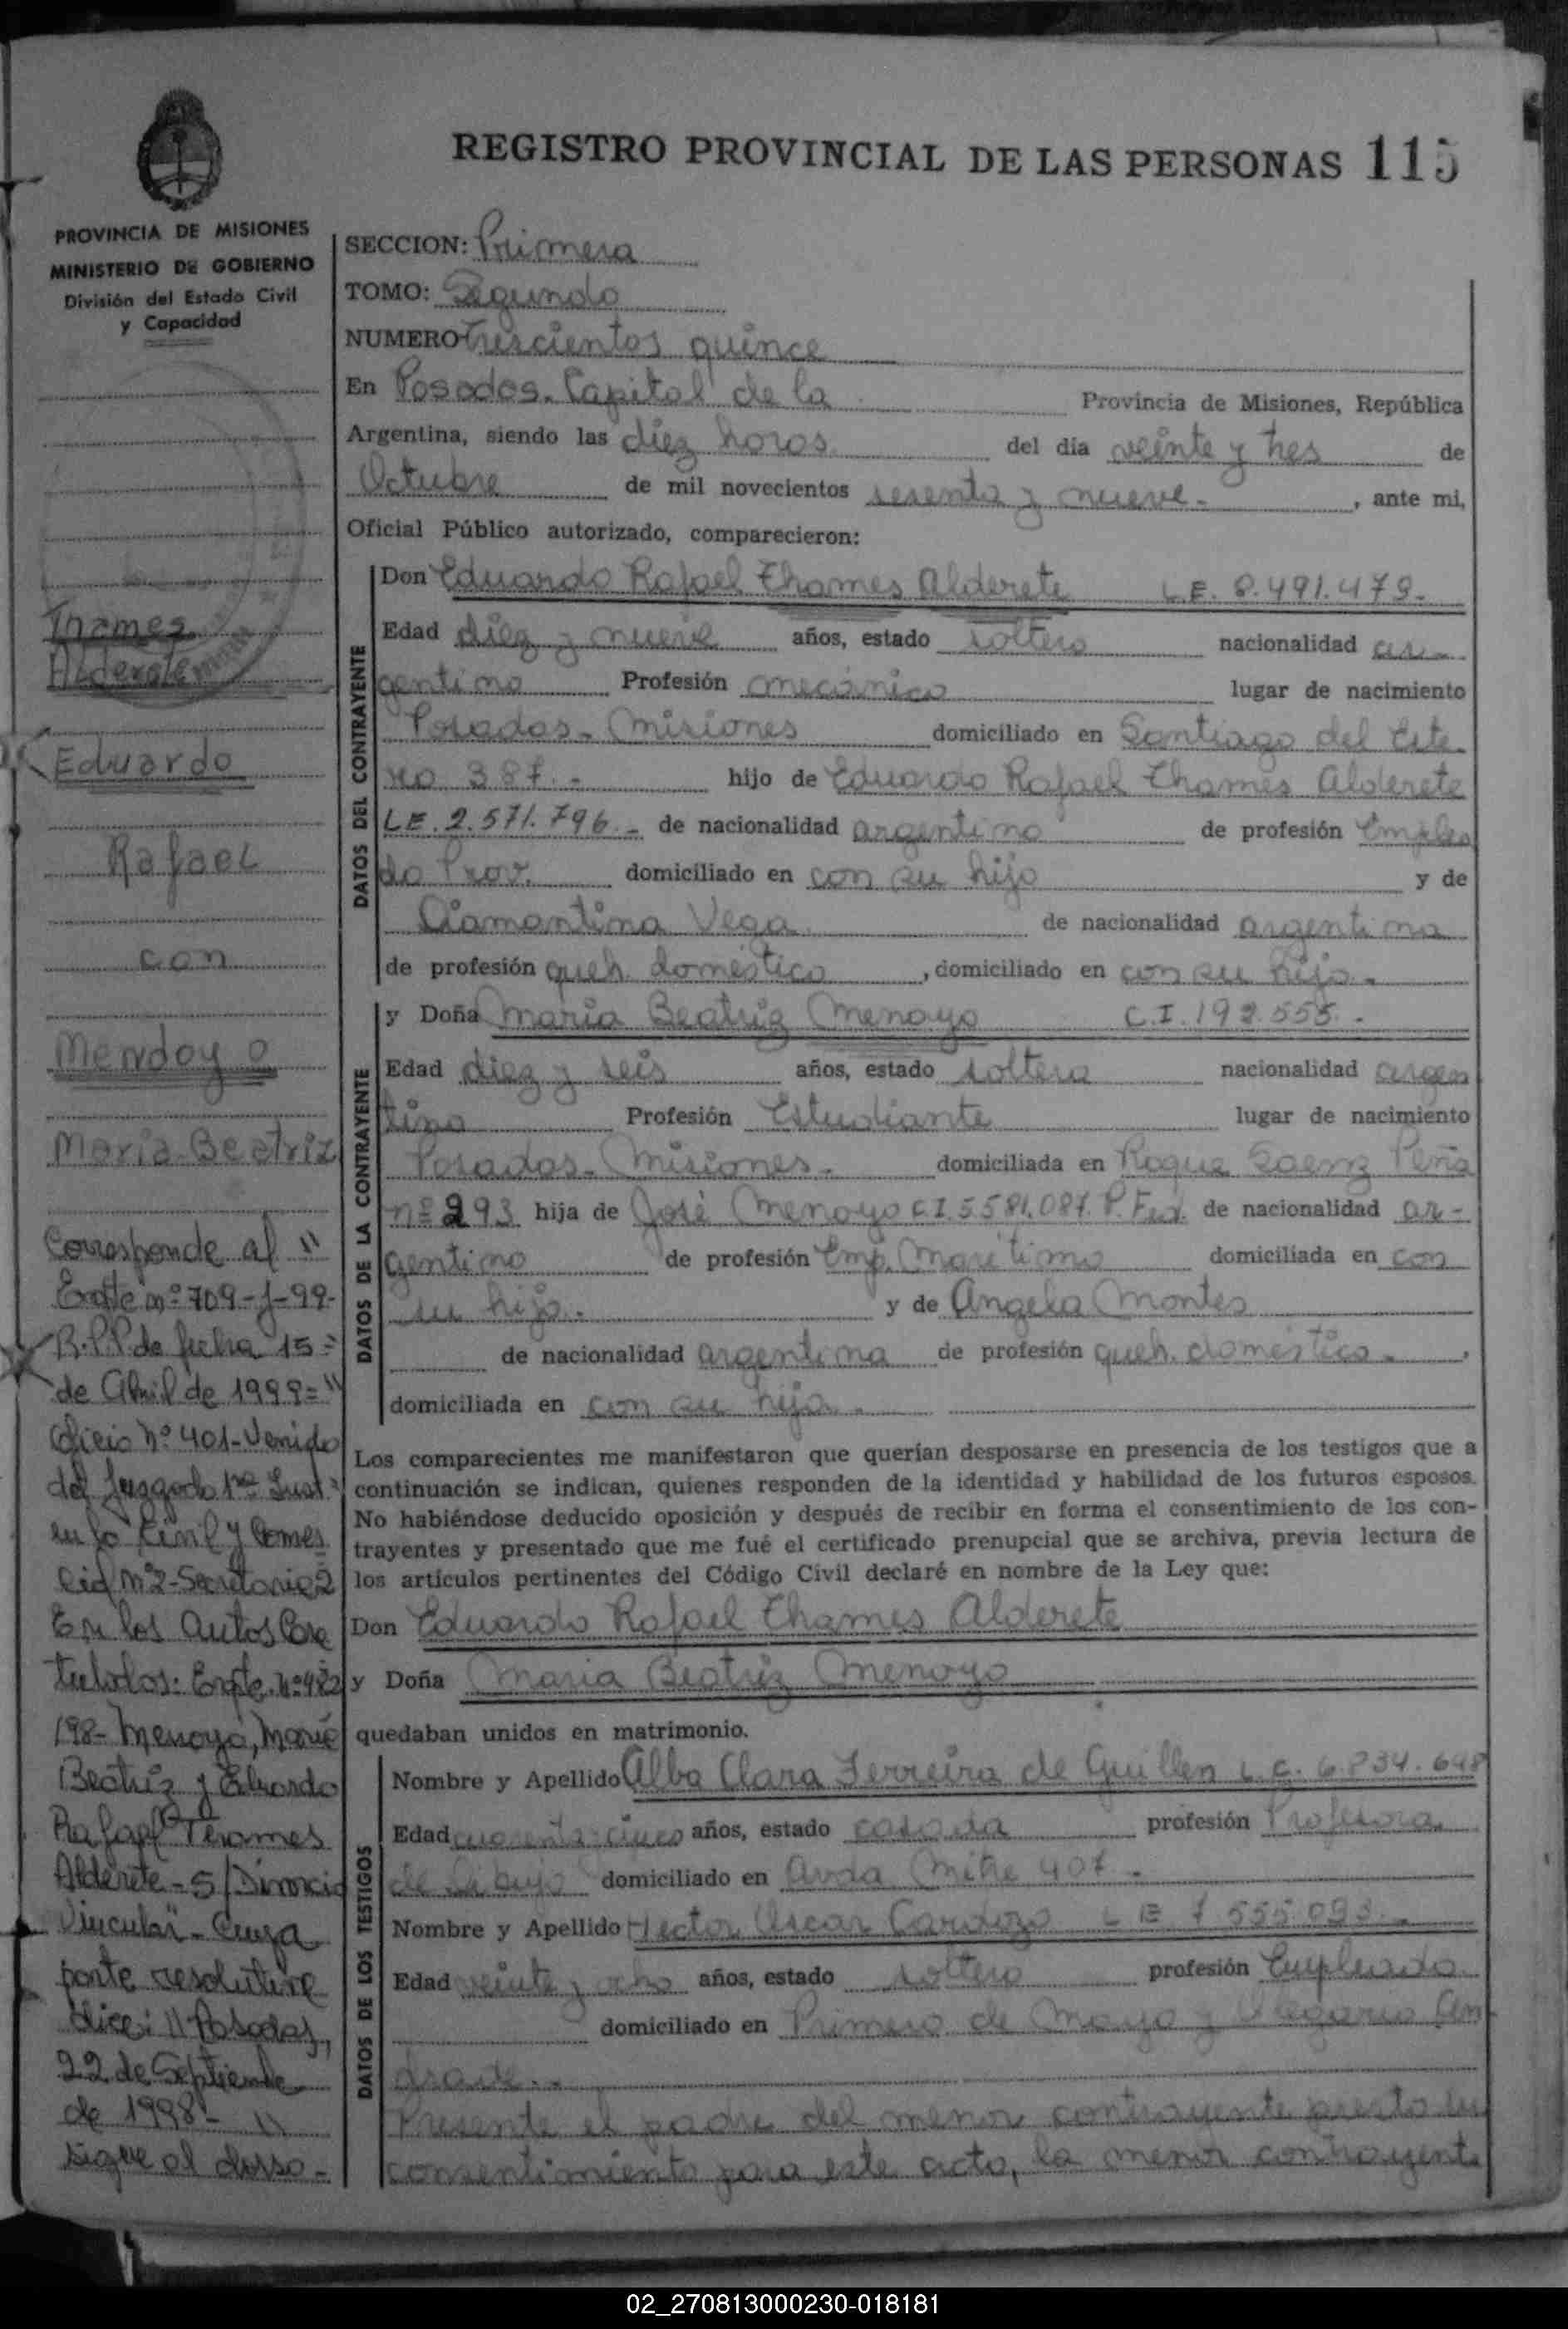 REGISTRO PROVINCIAL DE LAS PERSONAS 115
PROVINCIA DE MISIONES
MINISTERIO DE GOBIERNO
División del Estado Civil
y Capacidad
Thames
Alderete
Eduardo
Rafael
con
Mendoyo
María Beatriz
Corresponde al "
Expte nº 709-J-99-
R.P.P. de fecha 15=
de Abril de 1999="
Oficio Nº 401-Venido
del Juzgado 1ra Inst.
en lo Civil y Comer
cial nº2-Secretaria 2
En los Autos Cara
tulados: Expte. nº 482
198- Menoyo, María
Beatriz y Eduardo
Rafael Thames
Alderete - S/Divorcio
Vincular"- Cuya
parte resolutiva
dice: "Posadas,
22 de Septiembre
de 1998- "
sigue al dorso-
SECCION: Primera
TOMO: Segundo
NUMERO Trescientos quince
En Posadas. Capital de la Provincia de Misiones, República
Argentina, siendo las diez horas del día veinte y tres de
Octubre de mil novecientos sesenta y nueve. , ante mi,
Oficial Público autorizado, comparecieron:
DATOS DEL CONTRAYENTE
Don Eduardo Rafael Thames Alderete L.E. 8.491.479.
Edad diez y nueve años, estado soltero nacionalidad ar-
gentino Profesión mecánico lugar de nacimiento
Posadas - Misiones domiciliado en Santiago del Este
ro 387.- hijo de Eduardo Rafael Thames Alderete
LE. 2.571.796.- de nacionalidad argentino de profesión Emplea
do Prov. domiciliado en con su hijo y de
Diamantina Vega de nacionalidad argentina
de profesión queh. doméstico , domiciliado en con su hijo.-
DATOS DE LA CONTRAYENTE
y Doña María Beatriz Menoyo C.I. 192.555.-
Edad diez y seis años, estado soltera nacionalidad argen
tina Profesión Estudiante lugar de nacimiento
Posadas - Misiones.- domiciliada en Roque Saenz Peña
nº 293 hija de José Menoyo C.I. 5.581.087. P. Fed. de nacionalidad ar-
gentino de profesión Emp. Marítimo domiciliada en con
su hija.- y de Angela Montes
de nacionalidad argentina de profesión queh. doméstico.- ,
domiciliada en con su hija.-
Los comparecientes me manifestaron que querían desposarse en presencia de los testigos que a
continuación se indican, quienes responden de la identidad y habilidad de los futuros esposos.
No habiéndose deducido oposición y después de recibir en forma el consentimiento de los con-
trayentes y presentado que me fué el certificado prenupcial que se archiva, previa lectura de
los artículos pertinentes del Código Civil declaré en nombre de la Ley que:
Don Eduardo Rafael Thames Alderete
y Doña María Beatriz Menoyo
quedaban unidos en matrimonio.
DATOS DE LOS TESTIGOS
Nombre y Apellido Alba Clara Ferreira de Guillen L.C. 6.834.648
Edad cuarenta-cinco años, estado casada profesión Profesora
de Dibujo domiciliado en Avda Mitre 407.-
Nombre y Apellido Hector Oscar Cardozo L E 7 555.093.-
Edad veinte y ocho años, estado soltero profesión Empleado
domiciliado en Primero de Mayo y Olegario An
drade.-
Presente el padre del menor contrayente presto su
consentimiento para este acto, la menor contrayente
02_270813000230-018181